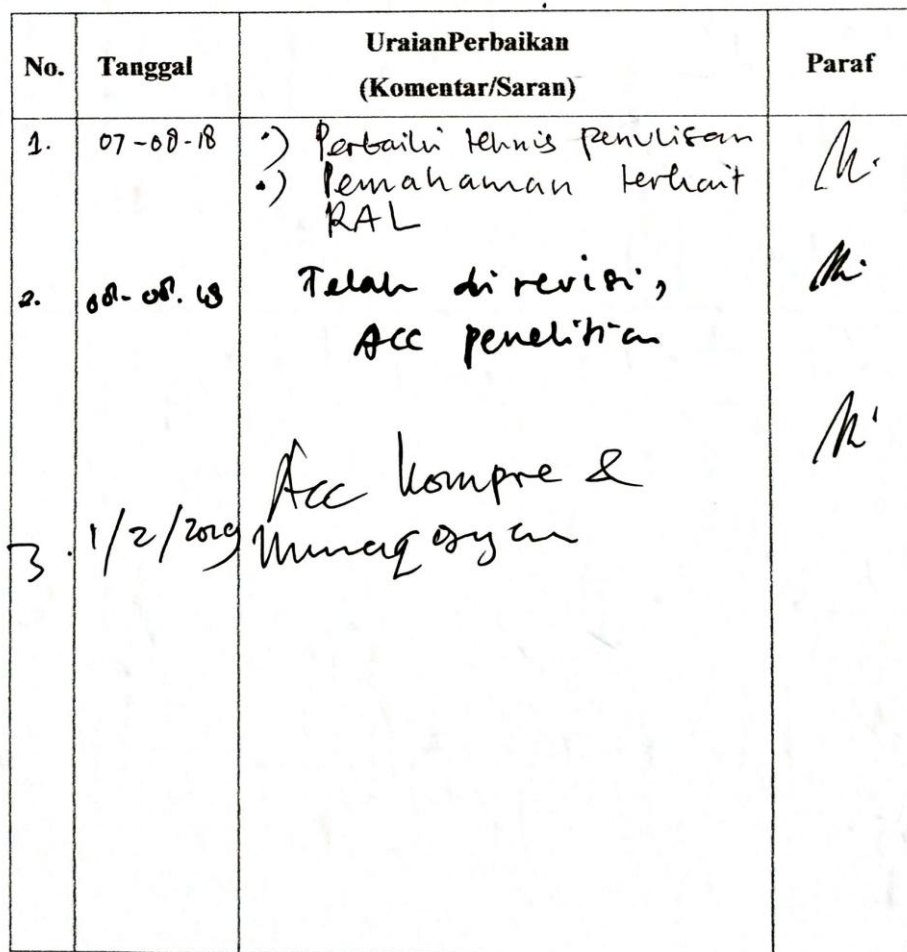 No. Tanggal UraianPerbaikan (Komentar/Saran) Paraf
1. 07-08-18 •) Perbaiki tehnis penulisan
•) Pemahaman terkait
RAL
2. 08-08-18 Telah di revisi,
Acc penelitian
Acc Kompre &
3. 1/2/2019 Munaqosyan